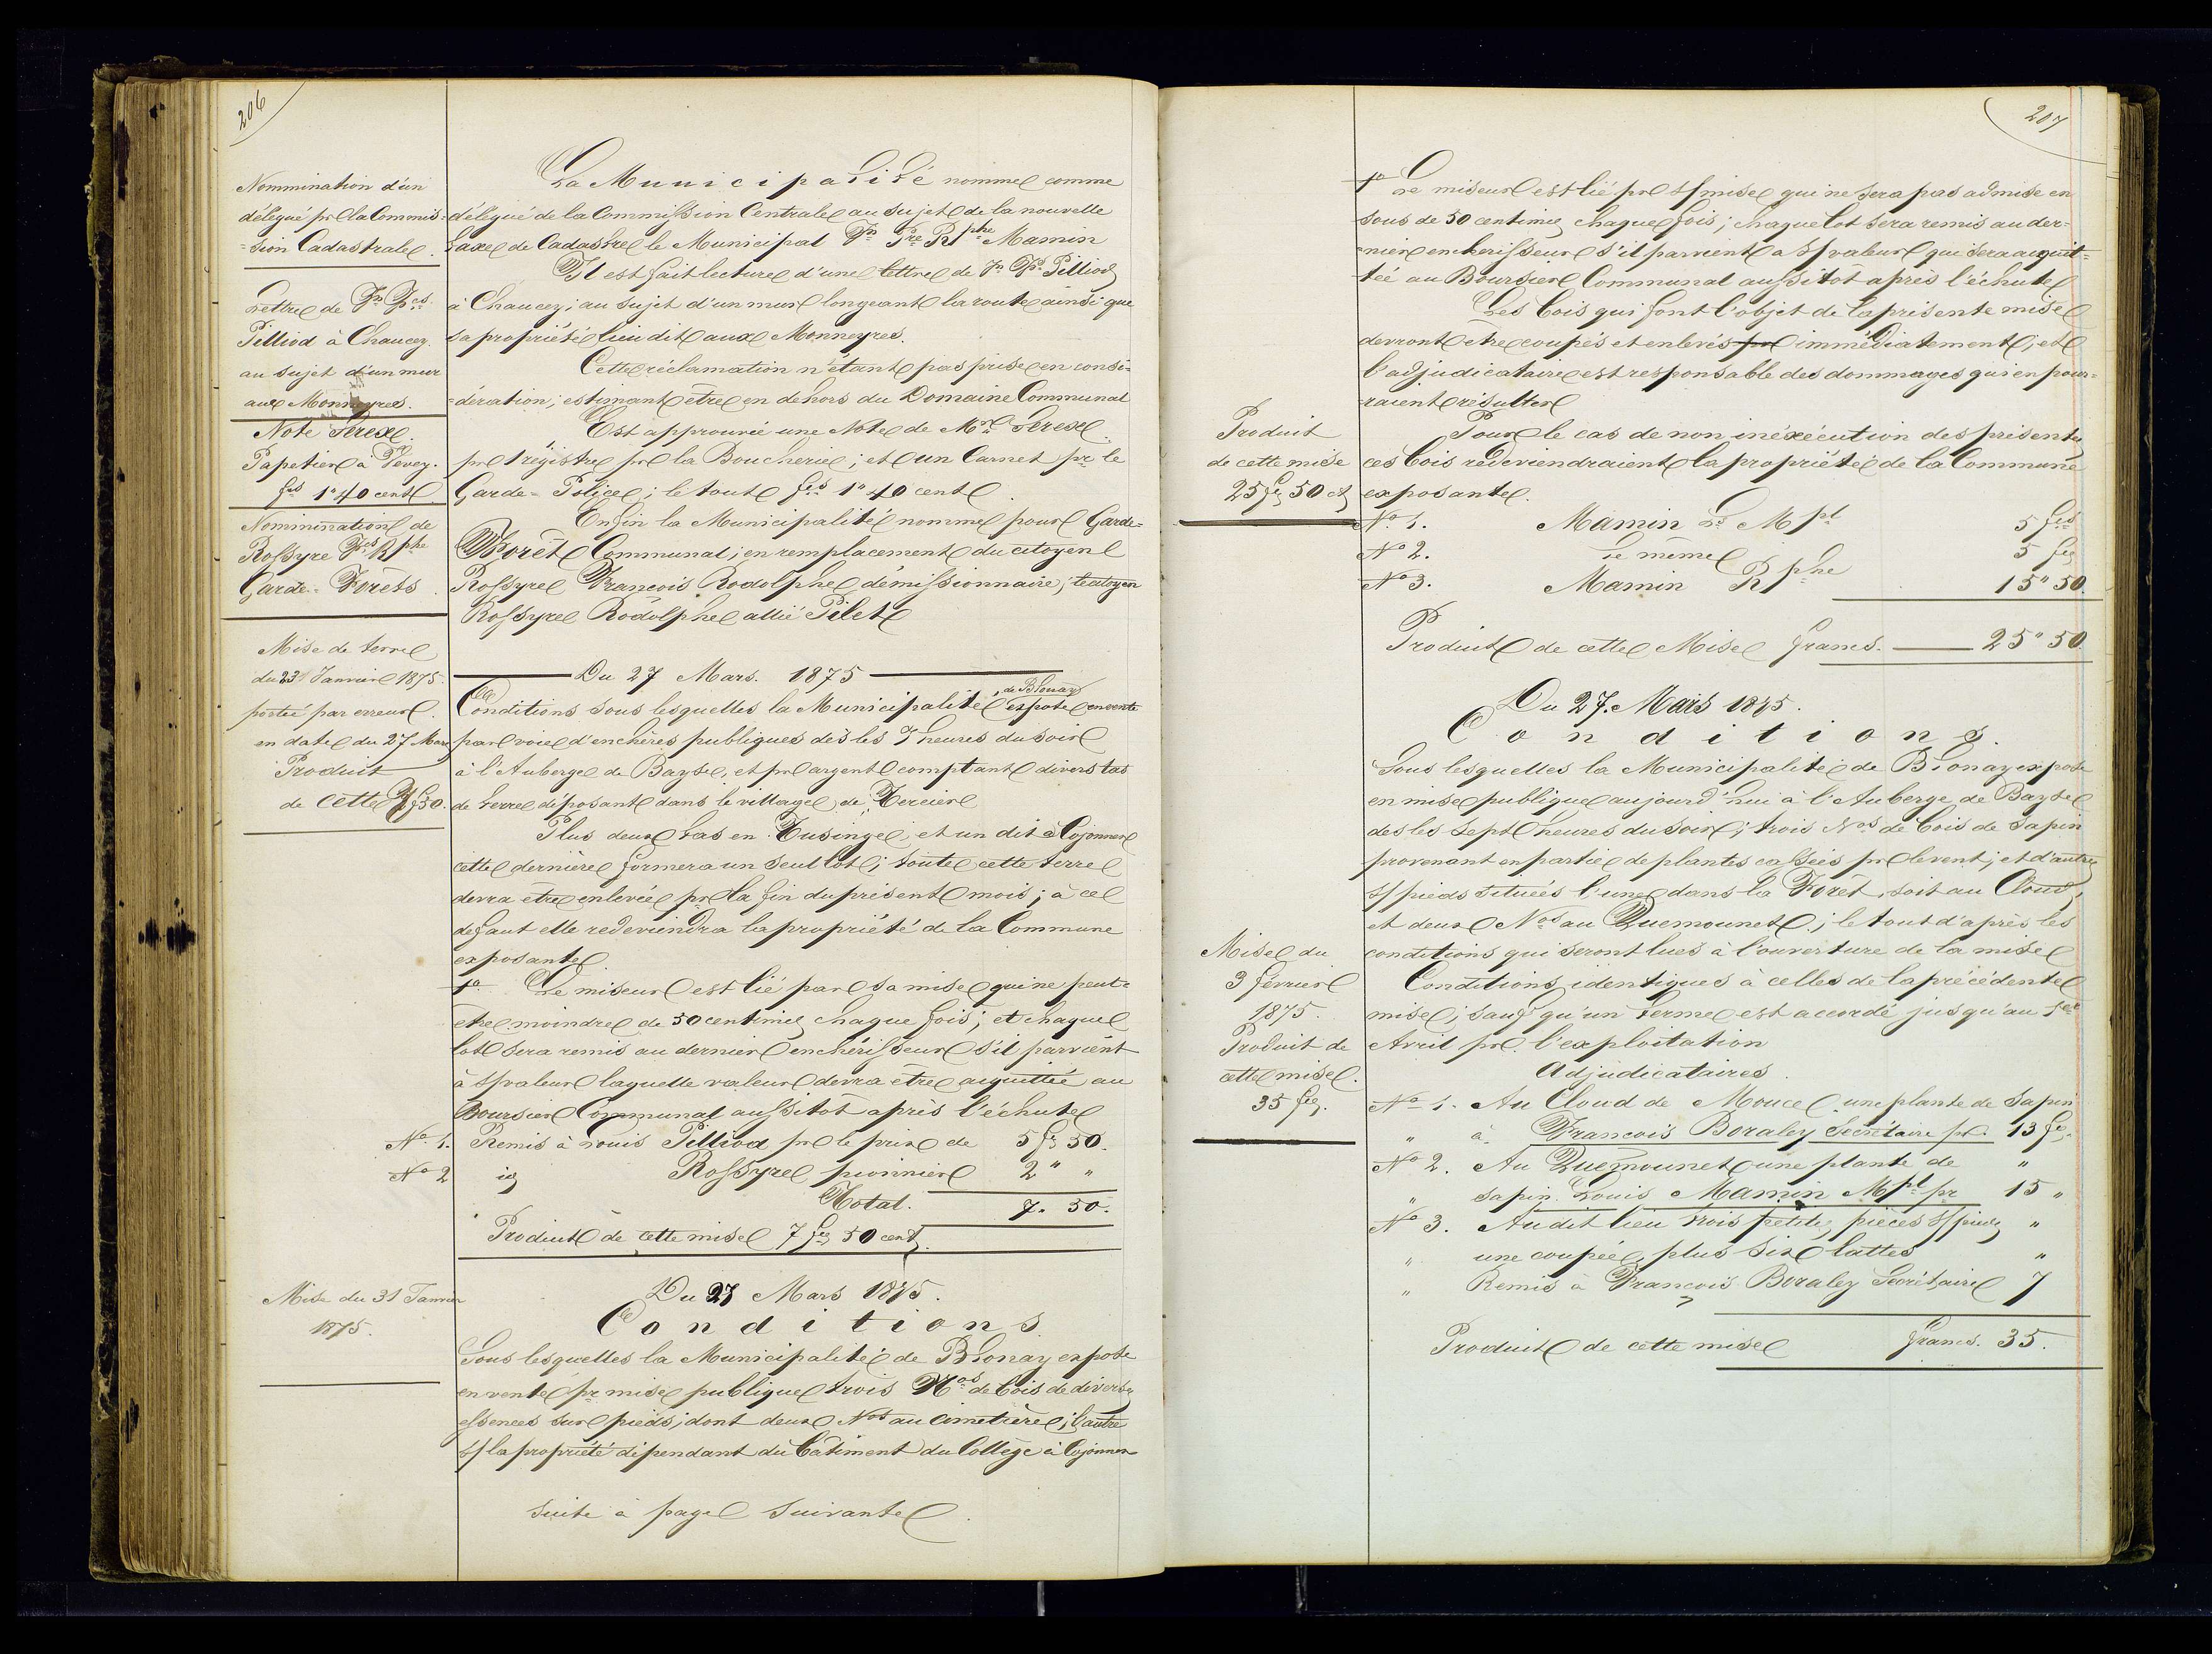 206
Nommination d'un
délégué pr la Commis=
=sion Cadastrale.
Lettre de Jn Fçs
Pilliod à Chaucey.
au sujet d'un mur
aux Monneyres.
Note Serex
Papetier à Vevey.
fcs 1" 40 cent
Nommination de
Rossyre Fçs Rphe
Garde-Forêts.
Mise de terre
du 23 Janvier 1875.
portée par erreur
en date du 27 Mars
Produit
de cette 7 f 50.
Mise du 31 Janvier
1875.
La Municipalité nomme comme
délégué de la Commission Centrale au sujet de la nouvelle
taxe de Cadastre le Municipal Jn Pre Rphe Mamin
Il est fait lecture d'une lettre de Jn Fçs Pilliod
à Chaucey; au sujet d'un mur longeant la route ainsi que
sa propriété lieu dit aux Monneyres.
Cette réclamation n'étant pas prise en consi=
=dération; estimant être en dehors du Domaine Communal
Est approuvée une Note de Mr Serex
pr 1 régistre pr la Boucherie; et un Carnet pr le
Garde-Police; le tout fcs 1" 40 cent.
Enfin la Municipalité nomme pour Garde-
Forêt Communal; en remplacement du citoyen
Rossyre Francois Rodolphe démissionnaire; le citoyen
Rossyre Rodolphe allié Pilet
Du 27 Mars. 1875
Conditions sous lesquelles la Municipalité de Blonay expose en vente
par voie d'enchères publiques dès les 7 heures du soir
à l'Auberge de Bayse, et pr argent comptant divers tas
de terre déposant dans le village de Tercier
Plus deux tas en Tusinge et un dit à Cojonnex
cette dernière formera un seul lot; toute cette terre
devra être enlevée pr la fin du présent mois; à ce
defaut elle redeviendra la propriété de la Commune
exposante
1º Le miseur est lié par sa mise qui ne peut-
être moindre de 50 centimes chaque fois; et chaque
lot sera remis au dernier enchérisseur s'il parvient
à s/ valeur laquelle valeur devra être aquittée au
Boursier Communal aussitôt après l'échute
Nº 1. Remis à Louis Pilliod pr le prix de 5 fr 50.
Nº 2 id Rossyre pionnier 2 " "
Total. 7. 50.
Produit de cette mise 7 fcs 50 cent.
Du 27 Mars 1875.
Conditions
Sous lesquelles la Municipalité de Blonay expose
en vente pr mise publique trois Nos de bois de diverses
essences sur pieds; dont deux Nos au cimetière; l'autre
s/ la propriété dépendant du bâtiment du Collège à Cojonnex
suite à page suivante.
207
Produit
de cette mise
25 fcs 50 ct
Mise du
3 février
1875.
Produit de
cette mise.
35 fcs.
1º Le miseur est lié pr s/ mise qui ne sera pas admise en
sous de 50 centimes chaque fois; chaque lot sera remis au der=
=nier enchérisseur s'il parvient a s/ valeur qui sera acquit=
=tée au Boursier Communal aussitôt après l'échute
Les bois qui font l'objet de la présente mise
devront être coupés et enlevés pr immédiatement; et
l'adjudicataire est responsable des dommages qui en pour=
=raient résulter
Pour le cas de non inéxécution des présentes
ces bois redeviendraient la propriété de la Commune
exposante.
Nº 1. Mamin Ls Mpl 5 fcs
Nº 2. Le même 5 fcs
Nº 3. Mamin Rphe 15" 50.
Produit de cette Mise francs. 25" 50.
Du 27. Mars 1875.
Conditions.
Sous lesquelles la Municipalité de Blonay expose
en mise publique aujourd'hui à l'Auberge de Bayse
des les sept heures du soir; trois Nos de bois de sapin
provenant en partie de plantes cassées pr le vent; et d'autres
s/ pieds situées l'une dans la Forêt, soit au Cloud,
et deux Nos au Quemounet; le tout d'après les
conditions qui seront lues à l'ouverture de la mise
Conditions identiques à celles de la précédente
mise; sauf qu'un terme est accordé jusqu'au 1er
Avril pr l'exploitation
Adjudicataires.
Nº 1. Au Cloud de Mouce une plante de sapin
" à Francois Boraley Secrétaire pr. 13 fcs.
Nº 2. Au Quemounet une plante de "
" sapin. Louis Mamin Mpl pr 15 "
Nº 3. Au dit lieu trois petites pièces s/ pieds "
" une coupée, plus six lattes "
" Remis à Francois Boraley Secrétaire 7
Produit de cette mise francs. 35.